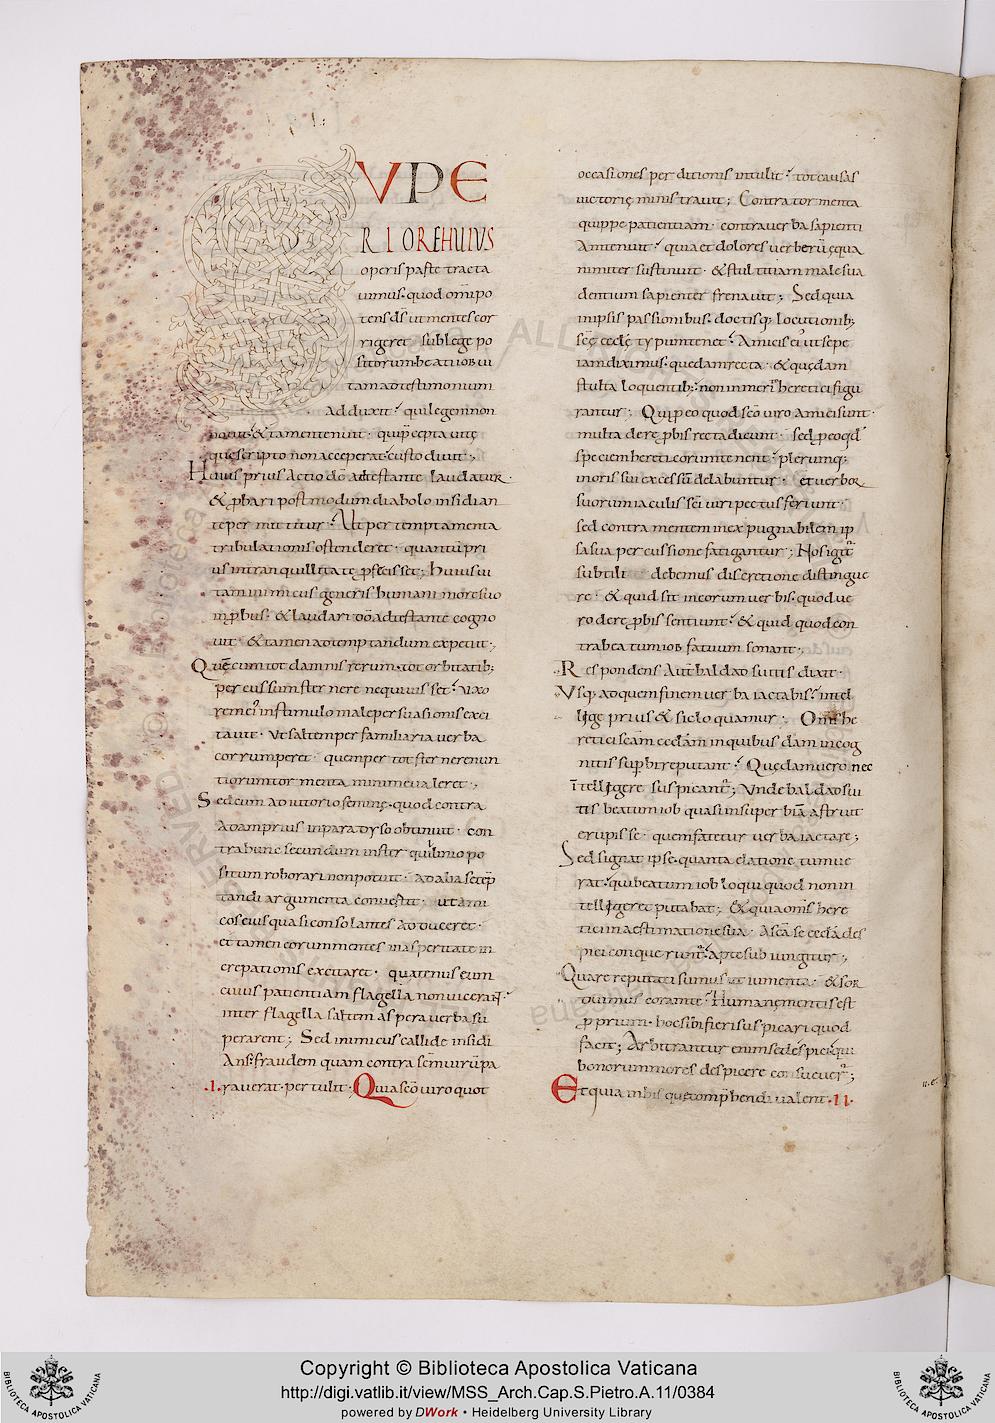 SUPE
RIORE HUIUS
operis parte tracta
uimus. quod omīpo
tens d̄s ut mentes cor
rigeret sub lege po
sitorum. beati iob ui
tam ad testimonium
adduxit; qui legem non
nouit. & tamen tenuit. quip̄cepta uitę
quę scripto non acceperat. custodiuit;
Huius prius actio dō adtestante laudatur.
& p̱bari postmodum diabolo insidian
te permittitur; Ut per temptamenta
tribulationis ostenderet. quantū pri
us in tranquillitate p̱fecisset; Huius ui
tam inimicus generis humani more suo
imp̱bus. & laudari dō adtestante cogno
uit. & tamen ad temptandum expetiit;
Quę cum tot damnis rerum. tot orbitatib;
percussum sternere nequiuisset; uxo
rem ei' in stimulo male persuasionis exci
tauit. Ut saltem per familiaria uerba
corrumperet. quem per tot sternere non
tiorum tormenta minime ualeret;
Sed cum adiutorio feminę. quod contra
adam prius in paradyso obtinuit. con
tra hunc secundum inster quilinio po
situm roborari non potuit. ad alia se tēp
tandi argumenta conuertit. ut ami
cos eius quasi consolantes adduceret.
et tamen eorum mentes in asperitate in
crepationis excitaret. quatenus eum
cuius patientiam flagella non uicerant
inter flagella saltem aspera uerba su
perarent; Sed inimicus callide insidi
ans. fraudem quam contra sc̄m uirū pa
.I. rauerat. pertulit. Quia sc̄o uiro quot
occasiones perditionis intulit; tot causas
uictorię ministrauit; Contra tormenta
quippe patientiam. contra uerba sapienti
am tenuit; quia et dolores uerberū ęqua
nimiter sustinuit. & stultitiam male sua
dentium sapienter frenauit; Sed quia
in ipsis passionibus. doctisq; locutionib;
sc̄ę ecclę typum tenet; Amicis ei' ut sepe
iam diximus. quedam recta. & quędam
stulta loquentib; non inmerito heretici figu
rantur; Qui p̱ eo quod sc̄o uiro amici sunt.
multa de rep̱bis recta dicunt. sed p̱ eo qd̄
speciem hereticorum tenent. plerumq;
in oris sui excessū delabuntur. et uerbor̄
suorum iaculis sc̄i uiri pectus feriunt.
sed contra mentem inexpugnabilem ip
sa sua percussione fatigantur; Nos igit̄
subtili debemus discretione distingue
re. & quid sit in eorum uerbis. quod ue
ro de rep̱bis sentiunt. & quid quod con
tra beatum iob fatuum sonant;
Respondens aut̄ baldad suitis dixit.
Vsq; ad quem finem uerba iactabis; intel
lige prius & sic loquamur. Om̄s he
retici sc̄am eccłam in quibusdam incog
nitis sup̱bire putant; Quędam uero nec
intellegere suspicant̄; Vnde baldad sui
tis beatum iob quasi in superbiā astruit
erupisse. quem fatetur uerba iactare;
Sed signat ipse. quanta elatione tumue
rat. qui beatum iob loqui quod non in
tellegeret putabat; & quia om̄s here
tici in aestimatione sua. a sc̄a se eccła des
pici conqueruntur. apte subiungitur;
Quare reputati sumus ut iumenta. & sor
duimus coram te; Humanę menti est
p̱prium. hoc sibi fieri suspicari quod
facit; Arbitrantur enim se despici qui
bonorum mores despicere consueuer̄;
Et quia in his quę comp̱hendi ualent. .II.
Copyright © Biblioteca Apostolica Vaticana
http://digi.vatlib.it/view/MSS_Arch.Cap.S.Pietro.A.11/0384
powered by DWork • Heidelberg University Library
BIBLIOTECA APOSTOLICA VATICANA
BIBLIOTECA APOSTOLICA VATICANA